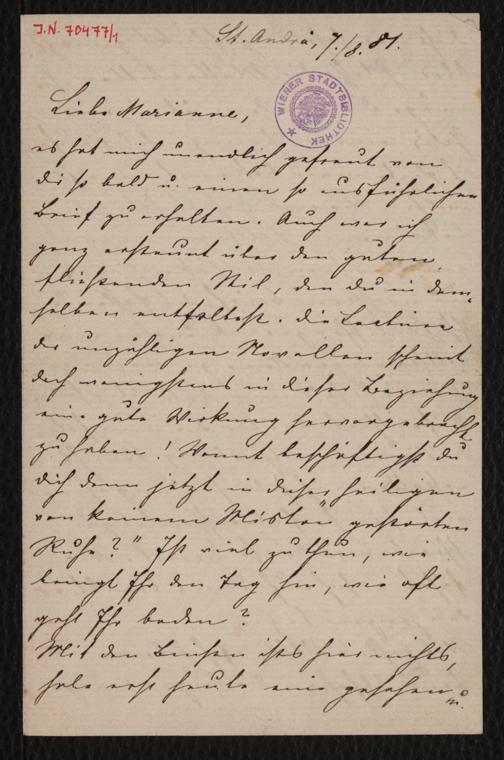 J.N. 70477/1
St. Andrä, 7./8. 81.
WIENER STADTBIBLIOTHEK
Liebe Marianne,
es hat mich unendlich gefreut von
dir so bald u. einen so ausführlichen
Brief zu erhalten. Auch war ich
ganz erstaunt über den guten
fließenden Stil, den du in dem-
selben entfaltest. Die Lectüre
der unzähligen Novellen scheint
doch wenigstens in dieser Beziehung
eine gute Wirkung hervorgebracht
zu haben! Womit beschäftigst du
dich denn jetzt in dieser heiligen
von keinem Miston gestörten
Ruhe?" Ist viel zu thun, wie
bringt Ihr den Tag hin, wie oft
geht Ihr baden?
Mit den Binsen ists hier nichts,
habe erst heute eine gesehen u.